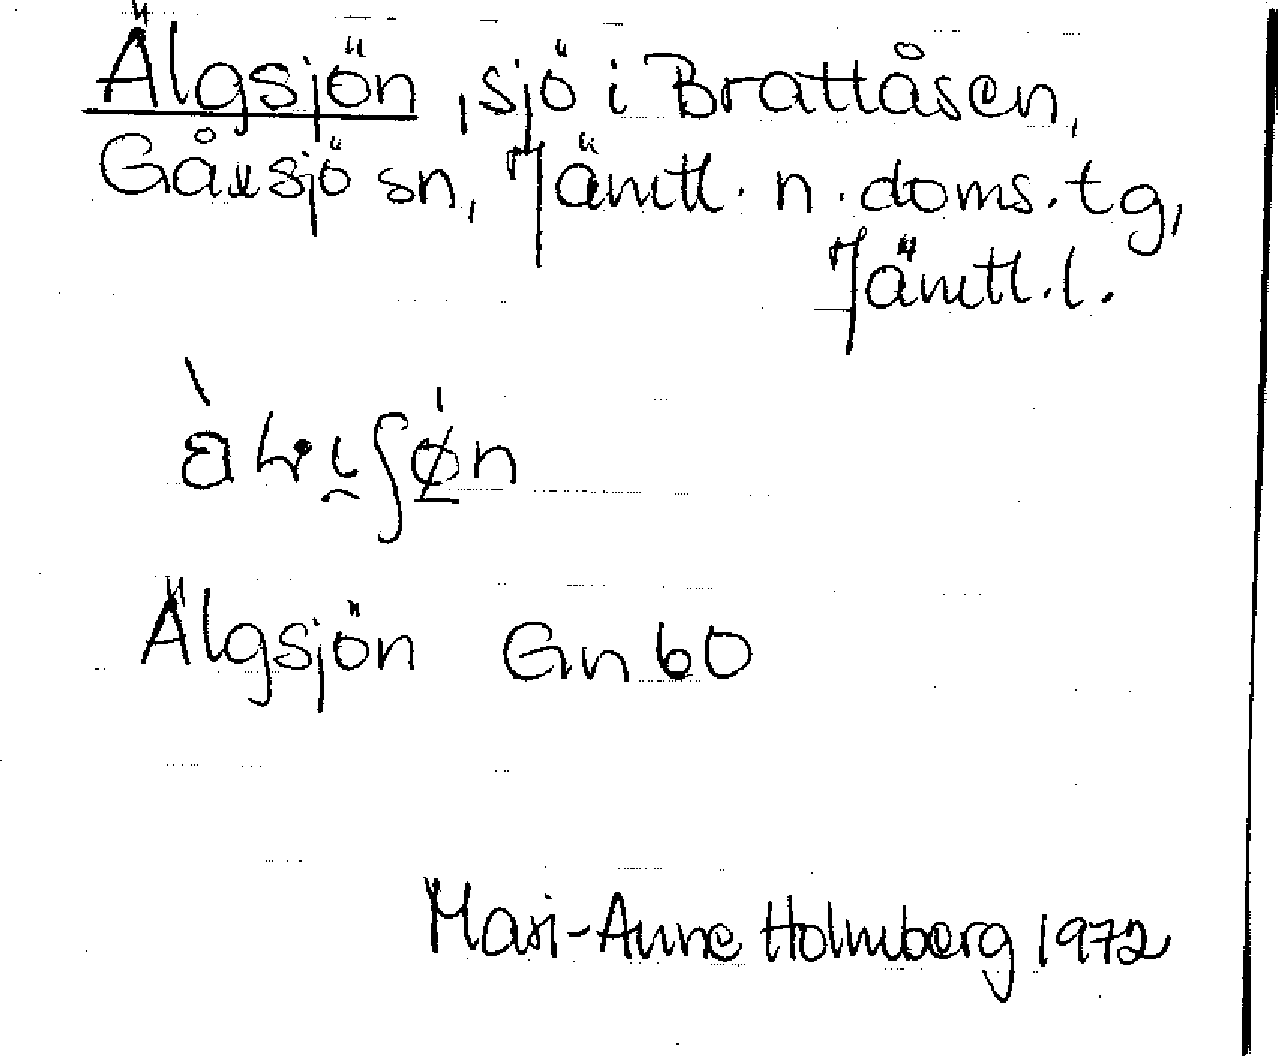 Älgsjön, sjö i Brattåsen,
Gåxsjö sn, Jämtl. n. doms. tg,
Jämtl. l.
Älgsjön Gn 60
Mari-Anne Holmberg 1972